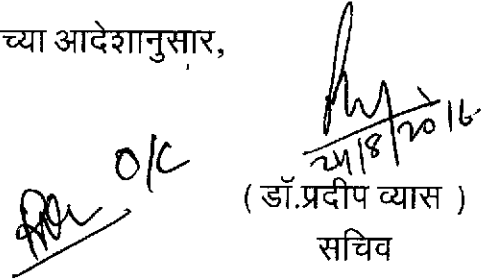 च्या आदेशानुसार,
O/C
24/8/2016
( डॉ.प्रदीप व्यास )
सचिव